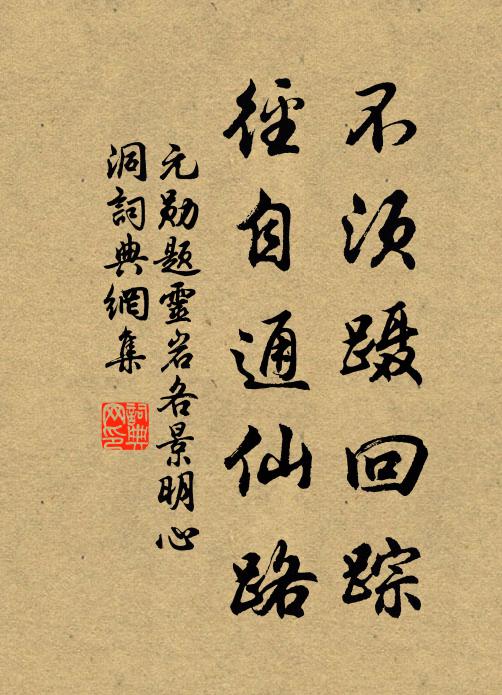 不须蹑回踪
径自通仙路
元勋题靈岩各景明心
洞詞典網集
詞典网印